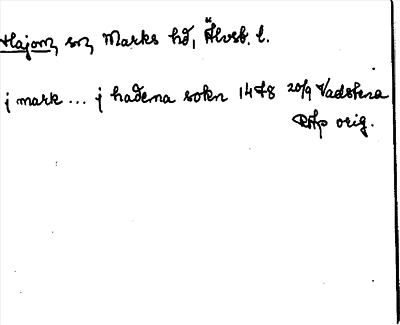 Hajom, sn, Marks hd, Älvsb. l.
j mark ... j hadema sokn 1478 20/9 Vadstena
RAp orig.